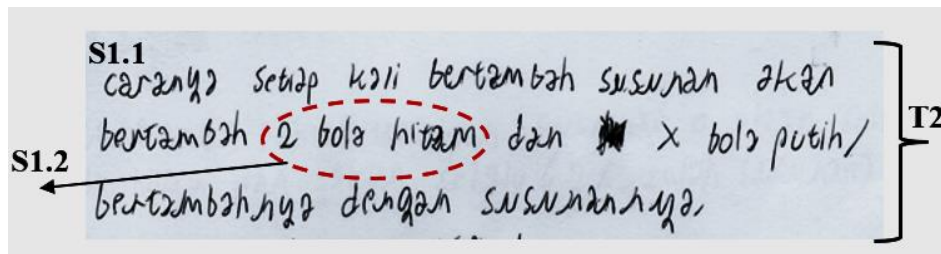 S1.1
caranya setiap kali bertambah susunan akan
bertambah 2 bola hitam dan x bola putih/
bertambahnya dengan susunannya,
S1.2
T2